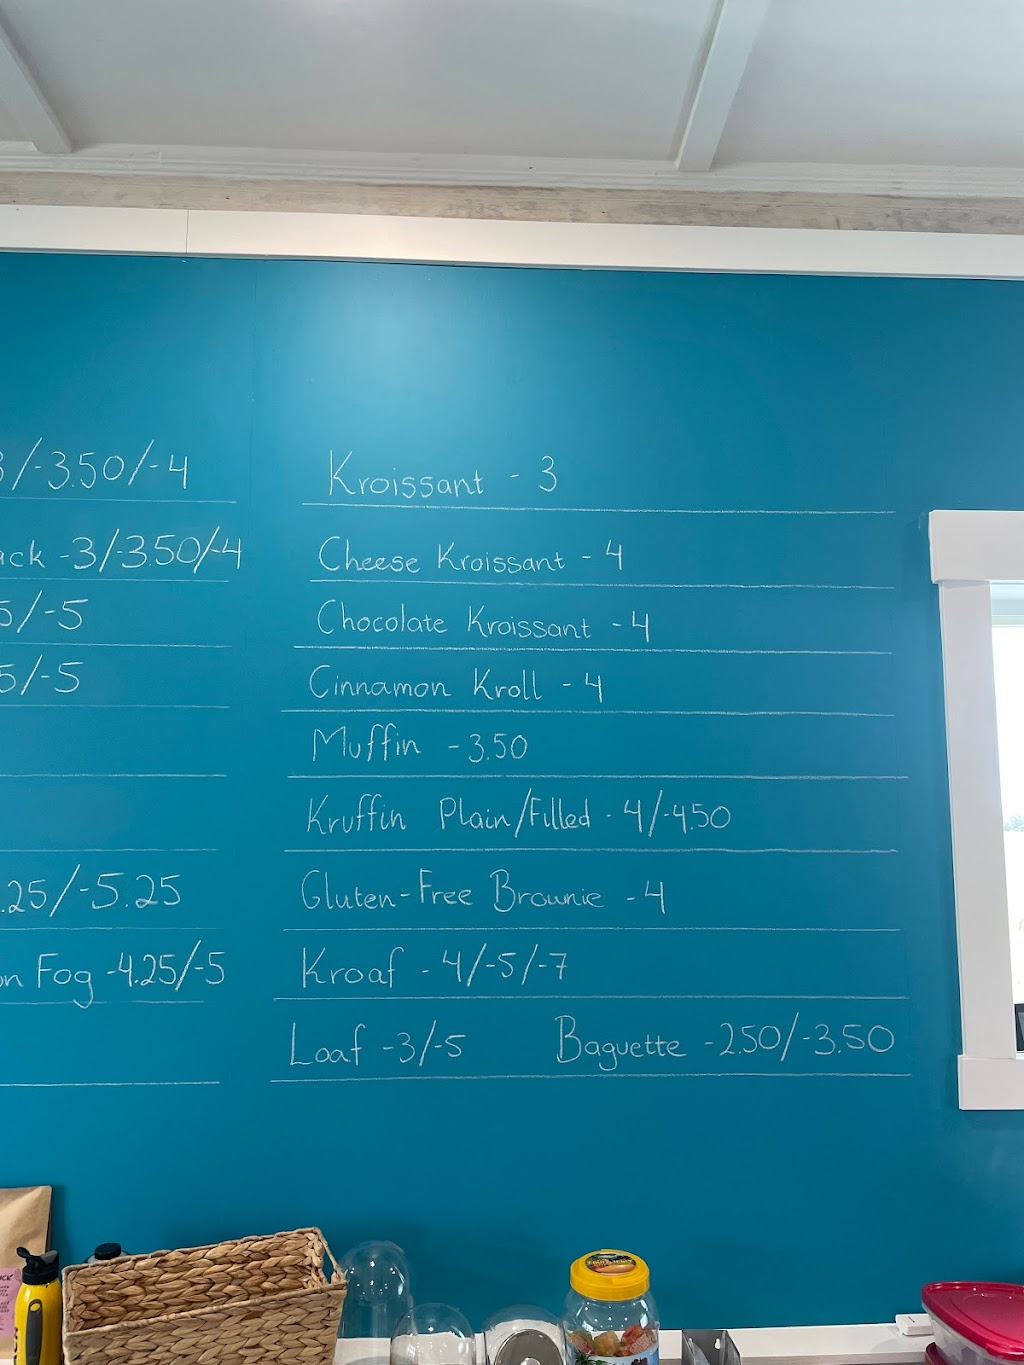 /-3.50/-4
-3/-3.50/-4
5/-5
5/-5
.25/-5.25
Fog -4.25/-5
Kroissant - 3
Cheese Kroissant - 4
Chocolate Kroissant - 4
Cinnamon Kroll - 4
Muffin - 3.50
Kruffin Plain/Filled - 4/-4.50
Gluten-Free Brownie - 4
Kroaf - 4/-5/-7
Loaf -3/-5 Baguette -2.50/-3.50